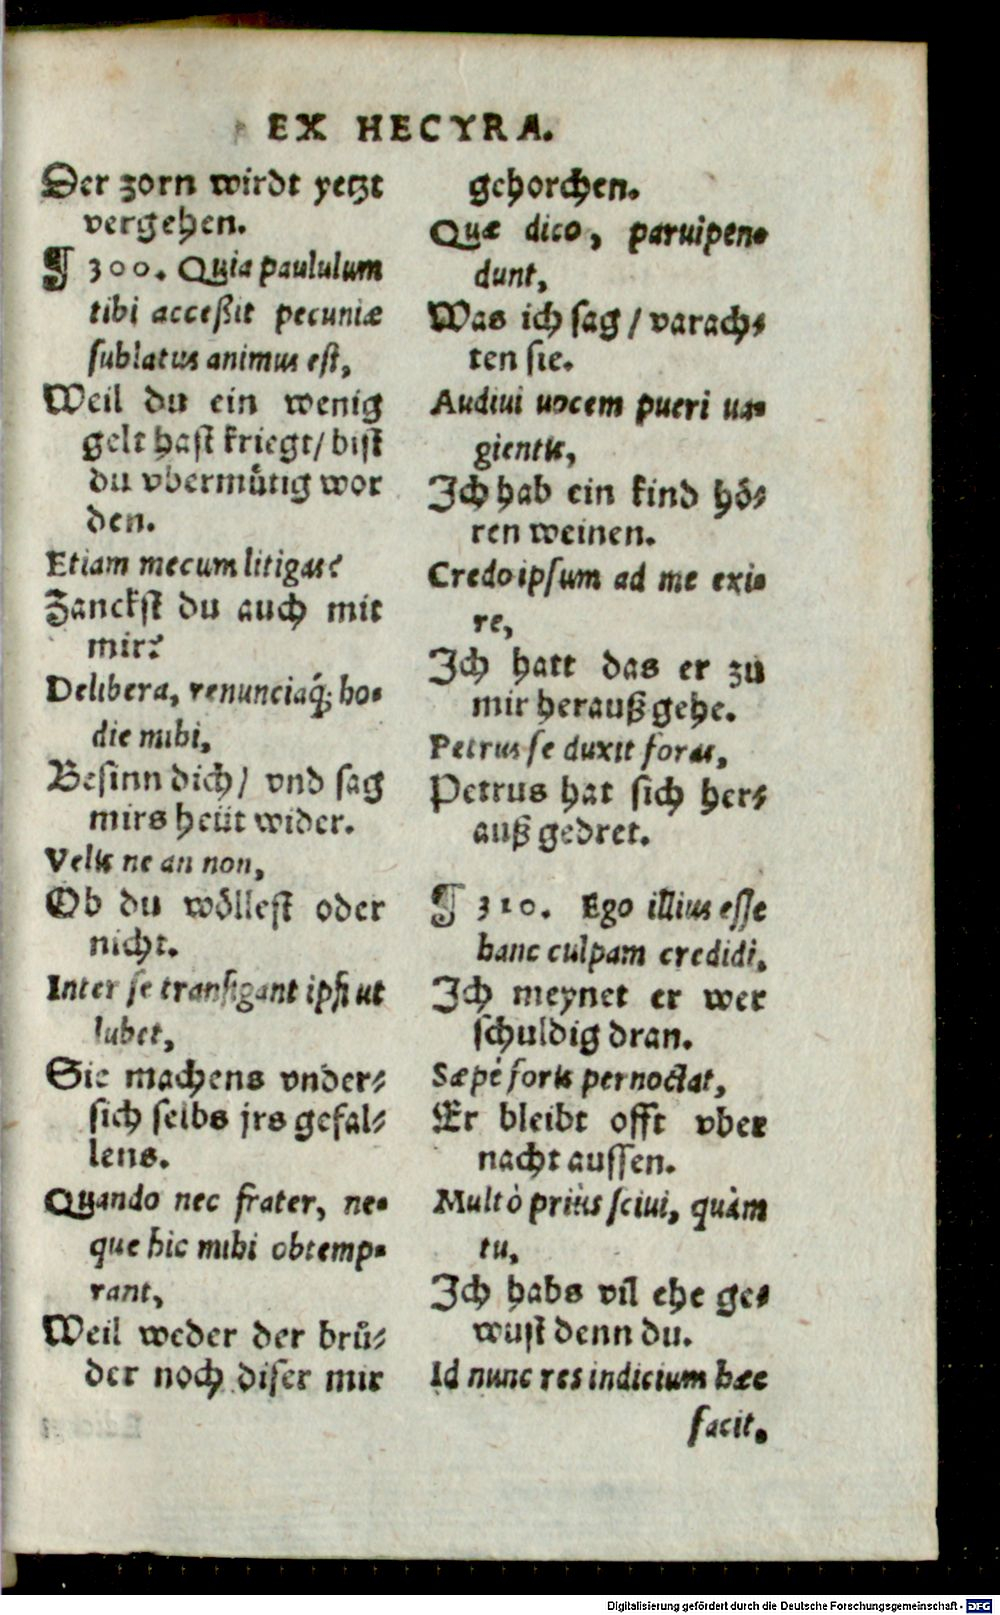 EX HECYRA.
Der zorn wirdt yetzt
vergehen.
¶ 300. Quia paululum
tibi acceßit pecuniæ
sublatus animus est,
Weil du ein wenig
gelt hast kriegt/ bist
du vbermuͤtig wor
den.
Etiam mecum litigas?
Zanckst du auch mit
mir?
Delibera, renunciaq́; ho-
die mihi,
Besinn dich/ vnd sag
mirs heüt wider.
Velis ne an non,
Ob du woͤllest oder
nicht.
Inter se transigant ipsi ut
lubet,
Sie machens vnder-
sich selbs jrs gefal-
lens.
Quando nec frater, ne-
que hic mihi obtemp-
rant,
Weil weder der bruͤ-
der noch diser mir
gehorchen.
Quæ dico, paruipen-
dunt,
Was ich sag / varach-
ten sie.
Audiui uocem pueri ua-
gientis,
Ich hab ein kind hoͤ-
ren weinen.
Credo ipsum ad me exi-
re,
Ich hatt das er zu
mir herauß gehe.
Petrus se duxit foras,
Petrus hat sich her-
auß gedret.
¶ 310. Ego illius esse
hanc culpam credidi.
Ich meynet er wer
schuldig dran.
Sæpè foris pernoctat,
Er bleibt offt vber
nacht aussen.
Multò priùs sciui, quàm
tu,
Ich habs vil ehe ge-
wust denn du.
Id nunc res indicium hæc
facit.
Digitalisierung gefördert durch die Deutsche Forschungsgemeinschaft - DFG